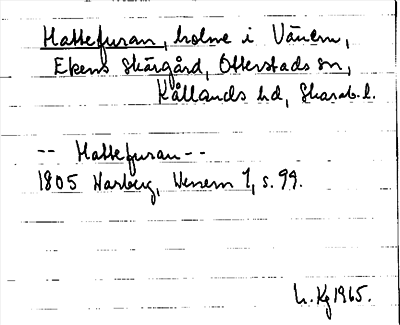 Hattefuran, holme i Vänern,
Ekens Skärgård, Otterstads sn,
Kållands hd, Skarab. l.
-- Hattefuran --
1805 Warberg, Wenern 1, s. 99.
L. Kg 1965.